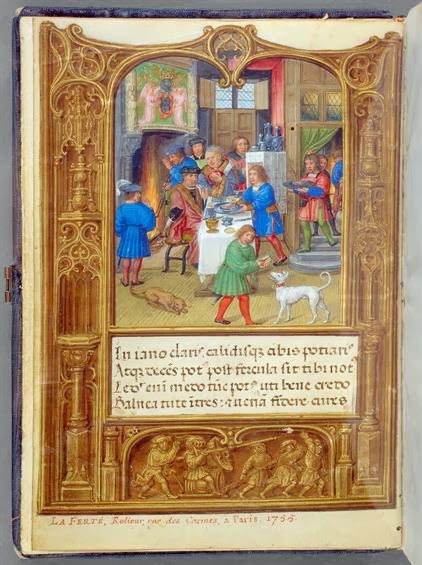 In iano claris calidisqz cibis potiaris
Atqz decēs pot' post fercula sit tibi not'
Ledit eni medo tūc pot' uti bene credo
Balnea tute ītres: et uenā fidere cures
LA FERTÉ, Relieur, rue des Carmes, a Paris. 1755.